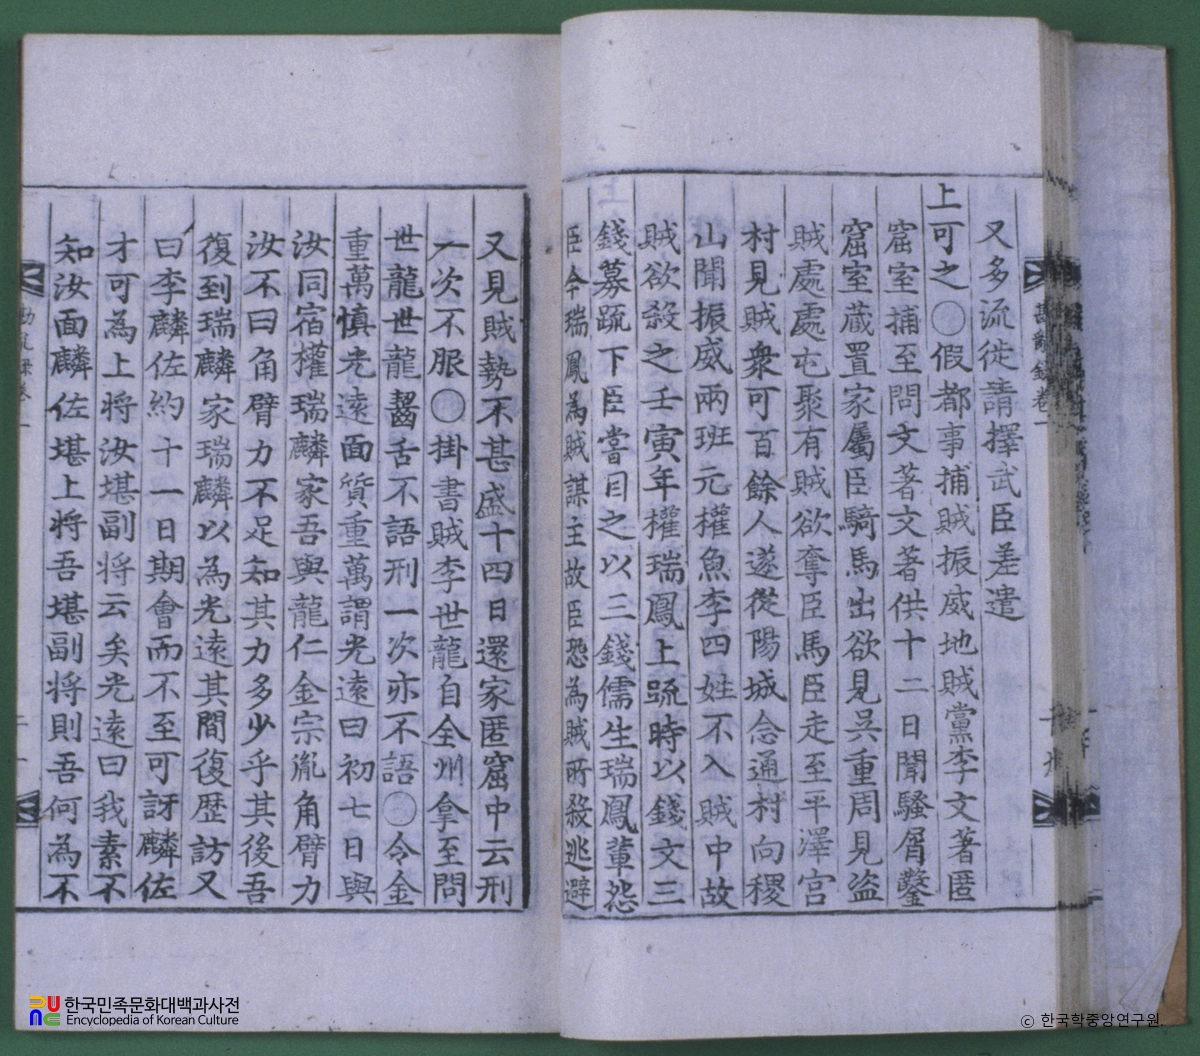 又多流徙請擇武臣差遣
上可之○假都事捕賊振威地賊黨李文著匿
窟室捕至問文著文著供十二日聞騷屑鑿
窟室蔵置家屬臣騎馬出欲見吴重周見盜
賊處處屯聚有賊欲奪臣馬臣走至平澤宫
村見賊衆可百餘人遂從陽城念通村向稷
山聞振威兩班元權魚李四姓不入賊中故
賊欲殺之壬寅年權瑞鳳上䟽時以錢文三
錢募䟽下臣當目之以三錢儒生瑞鳳輩怨
臣今瑞鳳為賊謀主故臣恐為賊所殺逃避
又見賊勢不甚盛十四日還家匿窟中云刑
一次不服○掛書賊李世龍自全州拿至問
世龍世龍齧舌不語刑一次亦不語○令金
重萬慎光遠面質重萬謂光遠曰初七日與
汝同宿權瑞麟家吾與龍仁金宗胤角臂力
汝不曰角臂力不足知其力多少乎其後吾
復到瑞麟家瑞麟以為光遠其間復歴訪又
曰李麟佐約十一日期會而不至可訝麟佐
才可為上将汝堪副将云矣光遠曰我素不
知汝面麟佐堪上将吾堪副将則吾何為不
勘亂録卷一
한국민족문화대백과사전
Encyclopedia of Korean Culture
ⓒ 한국학중앙연구원